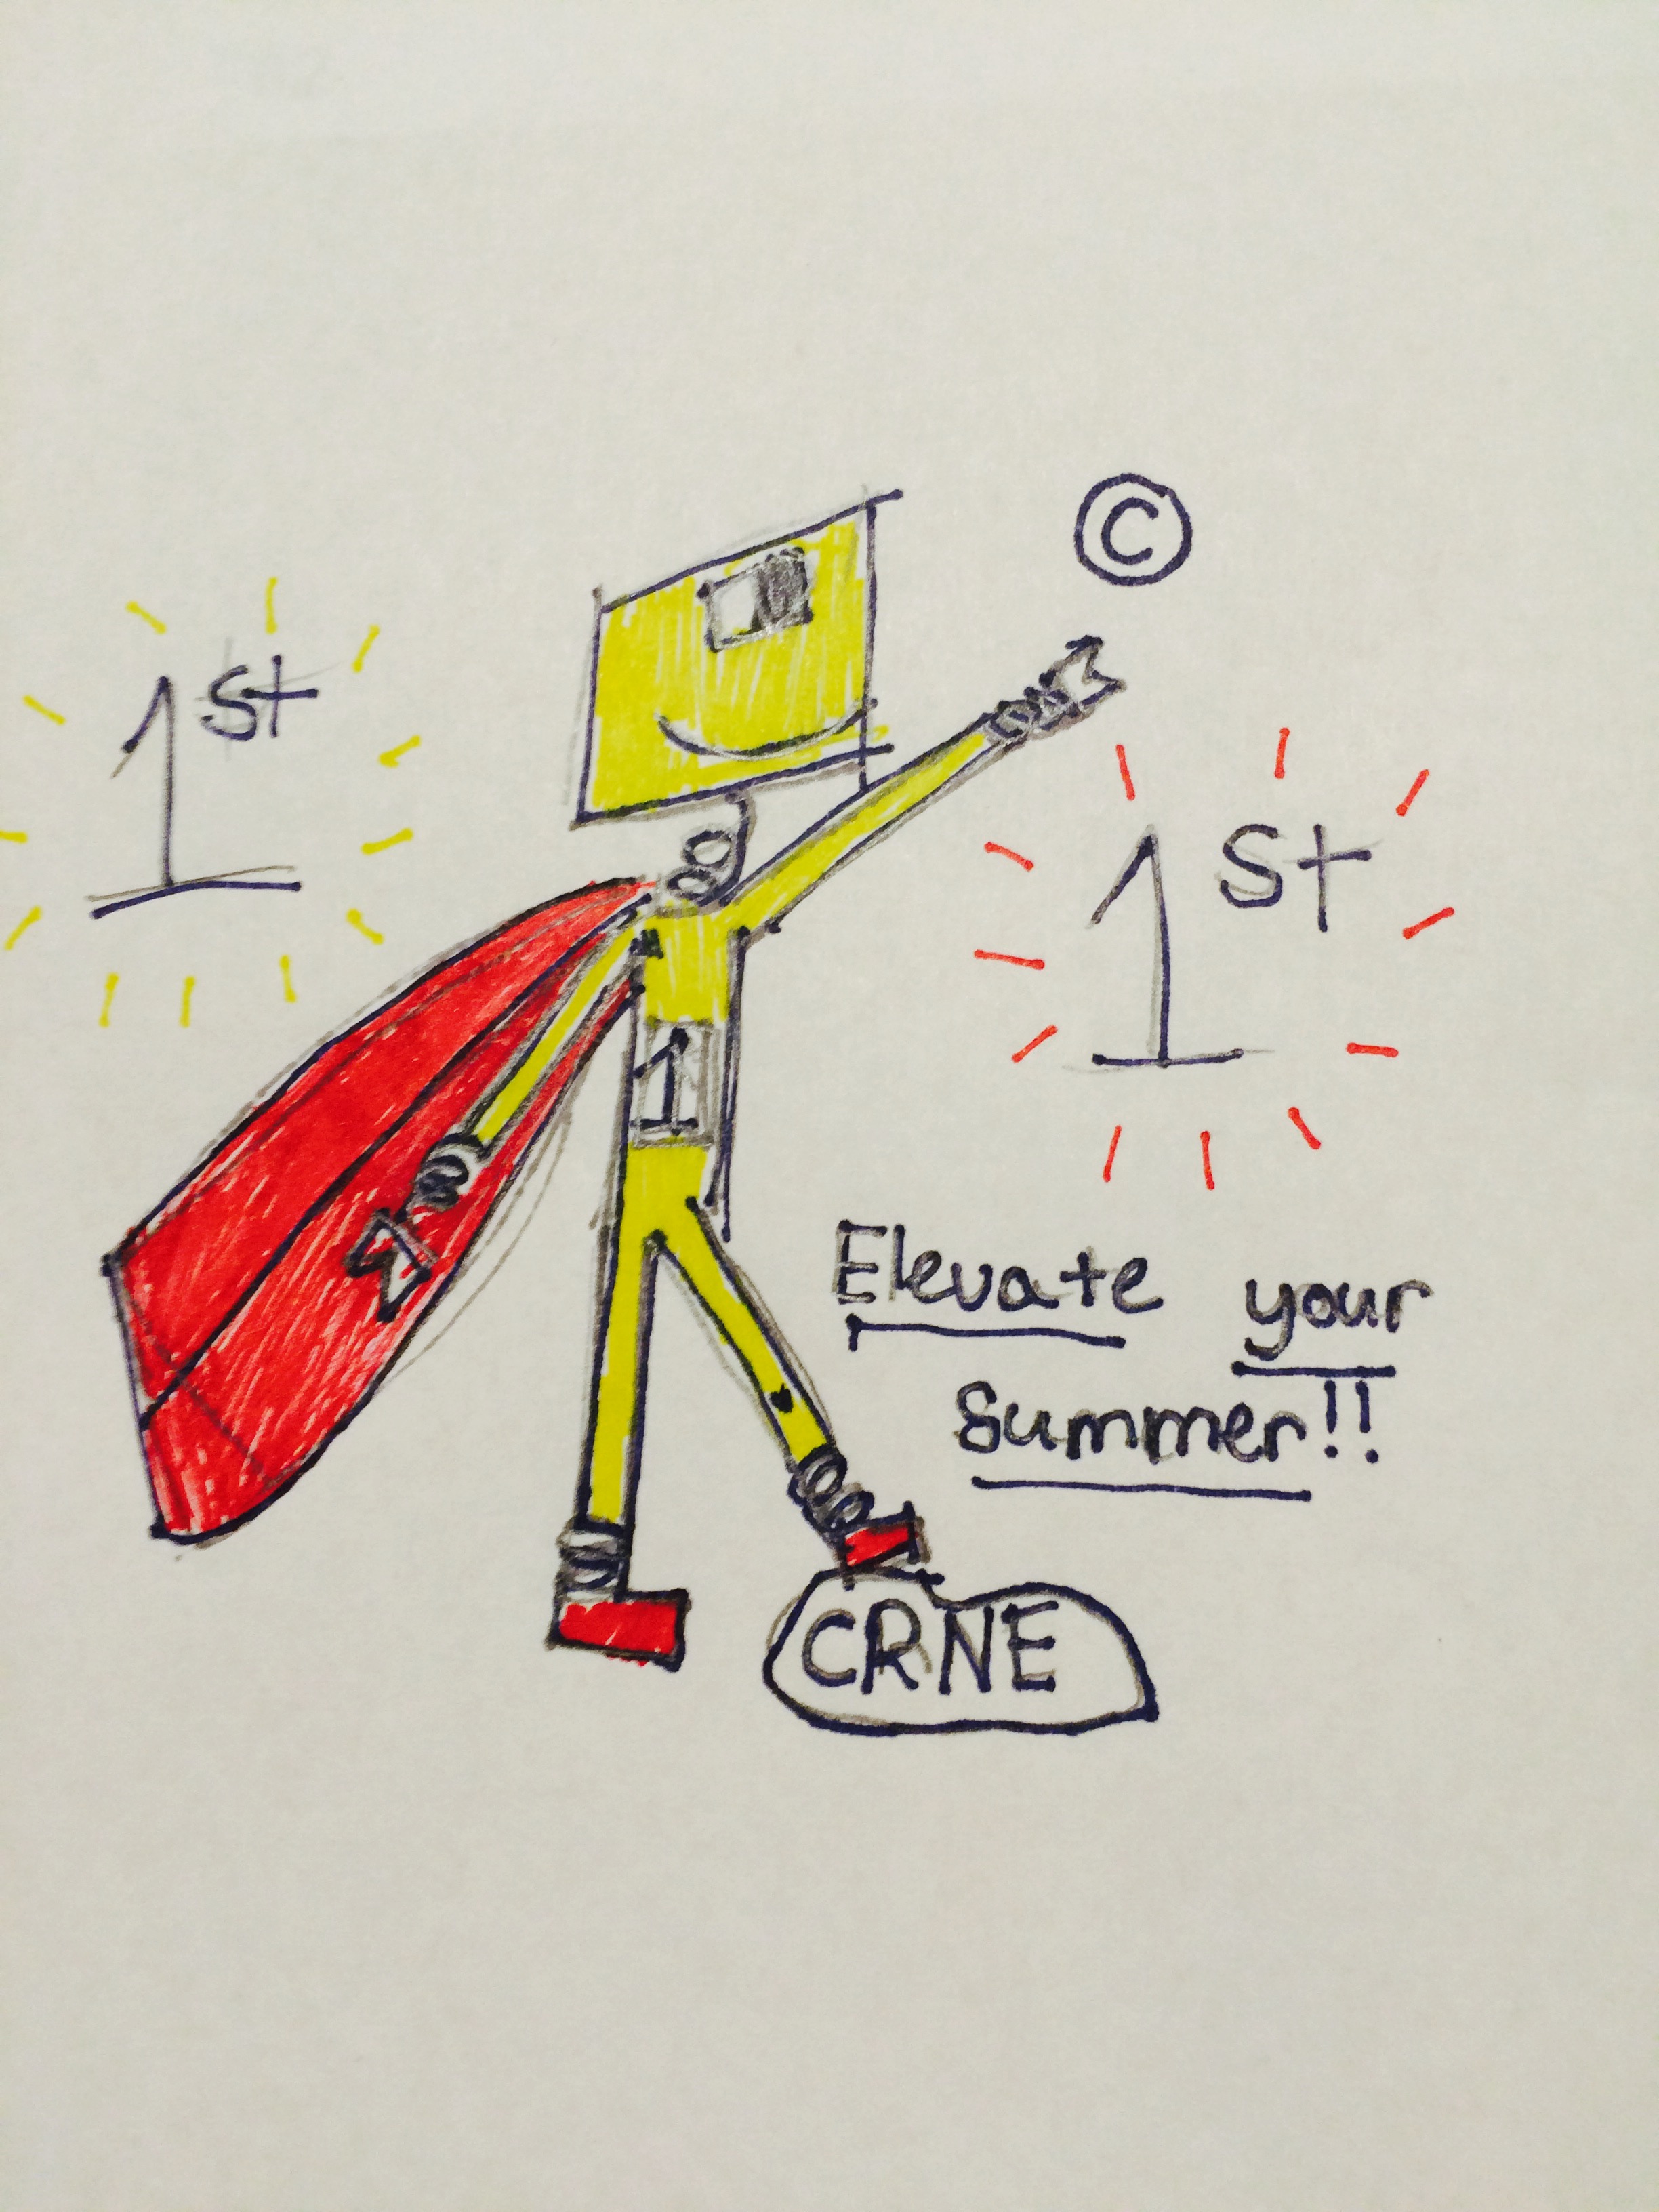 ©
1st
1st
1
Elevate your
Summer!!
CRNE